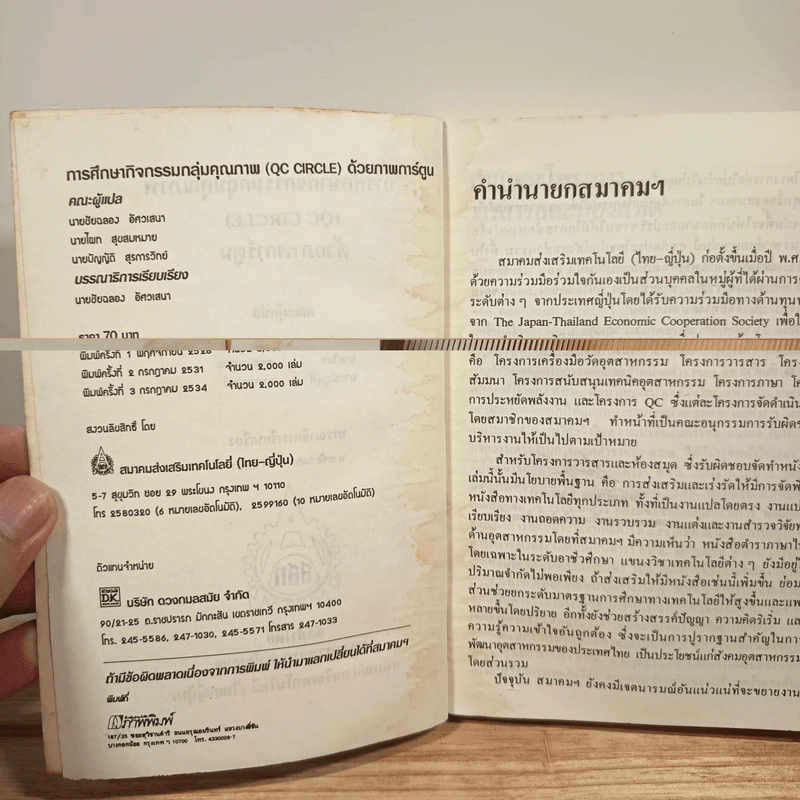 การศึกษากิจกรรมกลุ่มคุณภาพ (QC CIRCLE) ด้วยภาพการ์ตูน
คณะผู้แปล
นายชัยฉลอง อัศวเสนา
นายไผท สุขสมหมาย
นายปัญญัติ สุรการวิทย์
บรรณาธิการเรียบเรียง
นายชัยฉลอง อัศวเสนา
ราคา 70 บาท
พิมพ์ครั้งที่ 1 พฤศจิกายน 2526 จำนวน 2,000 เล่ม
พิมพ์ครั้งที่ 2 กรกฎาคม 2531 จำนวน 2,000 เล่ม
พิมพ์ครั้งที่ 3 กรกฎาคม 2534 จำนวน 2,000 เล่ม
สงวนลิขสิทธิ์ โดย
สมาคมส่งเสริมเทคโนโลยี่ (ไทย-ญี่ปุ่น)
5-7 สุขุมวิท ซอย 29 พระโขนง กรุงเทพ ฯ 10110
โทร 2580320 (6 หมายเลขอัตโนมัติ), 2599160 (10 หมายเลขอัตโนมัติ)
ตัวแทนจำหน่าย
DK บริษัท ดวงกมลสมัย จำกัด
90/21-25 ถ.ราชปรารภ มักกะสัน เขตราชเทวี กรุงเทพฯ 10400
โทร. 245-5586, 247-1030, 245-5571 โทรสาร 247-1033
ถ้ามีข้อผิดพลาดเนื่องจากการพิมพ์ ให้นำมาแลกเปลี่ยนได้ที่สมาคมฯ
พิมพ์ที่
ภาพพิมพ์
บางกอกน้อย กรุงเทพ ฯ 10700 โทร. 4330026-7
คำนำนายกสมาคมฯ
สมาคมส่งเสริมเทคโนโลยี (ไทย-ญี่ปุ่น) ก่อตั้งขึ้นเมื่อปี พ.ศ.
ด้วยความร่วมมือร่วมใจกันเองเป็นส่วนบุคคลในหมู่ผู้ที่ได้ผ่านการ
ระดับต่าง ๆ จากประเทศญี่ปุ่นโดยได้รับความร่วมมือทางด้านทุน
จาก The Japan-Thailand Economic Cooperation Society เพื่อ
คือ โครงการเครื่องมือวัดอุตสาหกรรม โครงการวารสาร
สัมมนา โครงการสนับสนุนเทคนิคอุตสาหกรรม โครงการภาษา
การประหยัดพลังงาน และโครงการ QC ซึ่งแต่ละโครงการจัดดำเนิน
โดยสมาชิกของสมาคมฯ ทำหน้าที่เป็นคณะอนุกรรมการรับผิด
บริหารงานให้เป็นไปตามเป้าหมาย
สำหรับโครงการวารสารและห้องสมุด ซึ่งรับผิดชอบจัดทำหนัง
เล่มนี้นั้นมีนโยบายพื้นฐาน คือ การส่งเสริมและเร่งรัดให้มีการจัด
หนังสือทางเทคโนโลยีทุกประเภท ทั้งที่เป็นงานแปลโดยตรง งาน
เรียบเรียง งานถอดความ งานรวบรวม งานแต่งและงานสำรวจวิจัย
ด้านอุตสาหกรรมโดยที่สมาคมฯ มีความเห็นว่า หนังสือตำราภาษา
โดยเฉพาะในระดับอาชีวศึกษา แขนงวิชาเทคโนโลยีต่าง ๆ ยังมีอยู่
ปริมาณจำกัดไม่พอเพียง ถ้าส่งเสริมให้มีหนังสือเช่นนี้เพิ่มขึ้น ย่อม
ส่วนช่วยยกระดับมาตรฐานการศึกษาทางเทคโนโลยีให้สูงขึ้นและ
หลายขึ้นโดยปริยาย อีกทั้งยังช่วยสร้างสรรค์ปัญญา ความคิดริเริ่ม และ
ความรู้ความเข้าใจอันถูกต้อง ซึ่งจะเป็นการปูรากฐานสำคัญในการ
พัฒนาอุตสาหกรรมของประเทศไทย เป็นประโยชน์แก่สังคมอุตสาหกรรม
โดยส่วนรวม
ปัจจุบัน สมาคมฯ ยังคงมีเจตนารมณ์อันแน่วแน่ที่จะขยายงาน